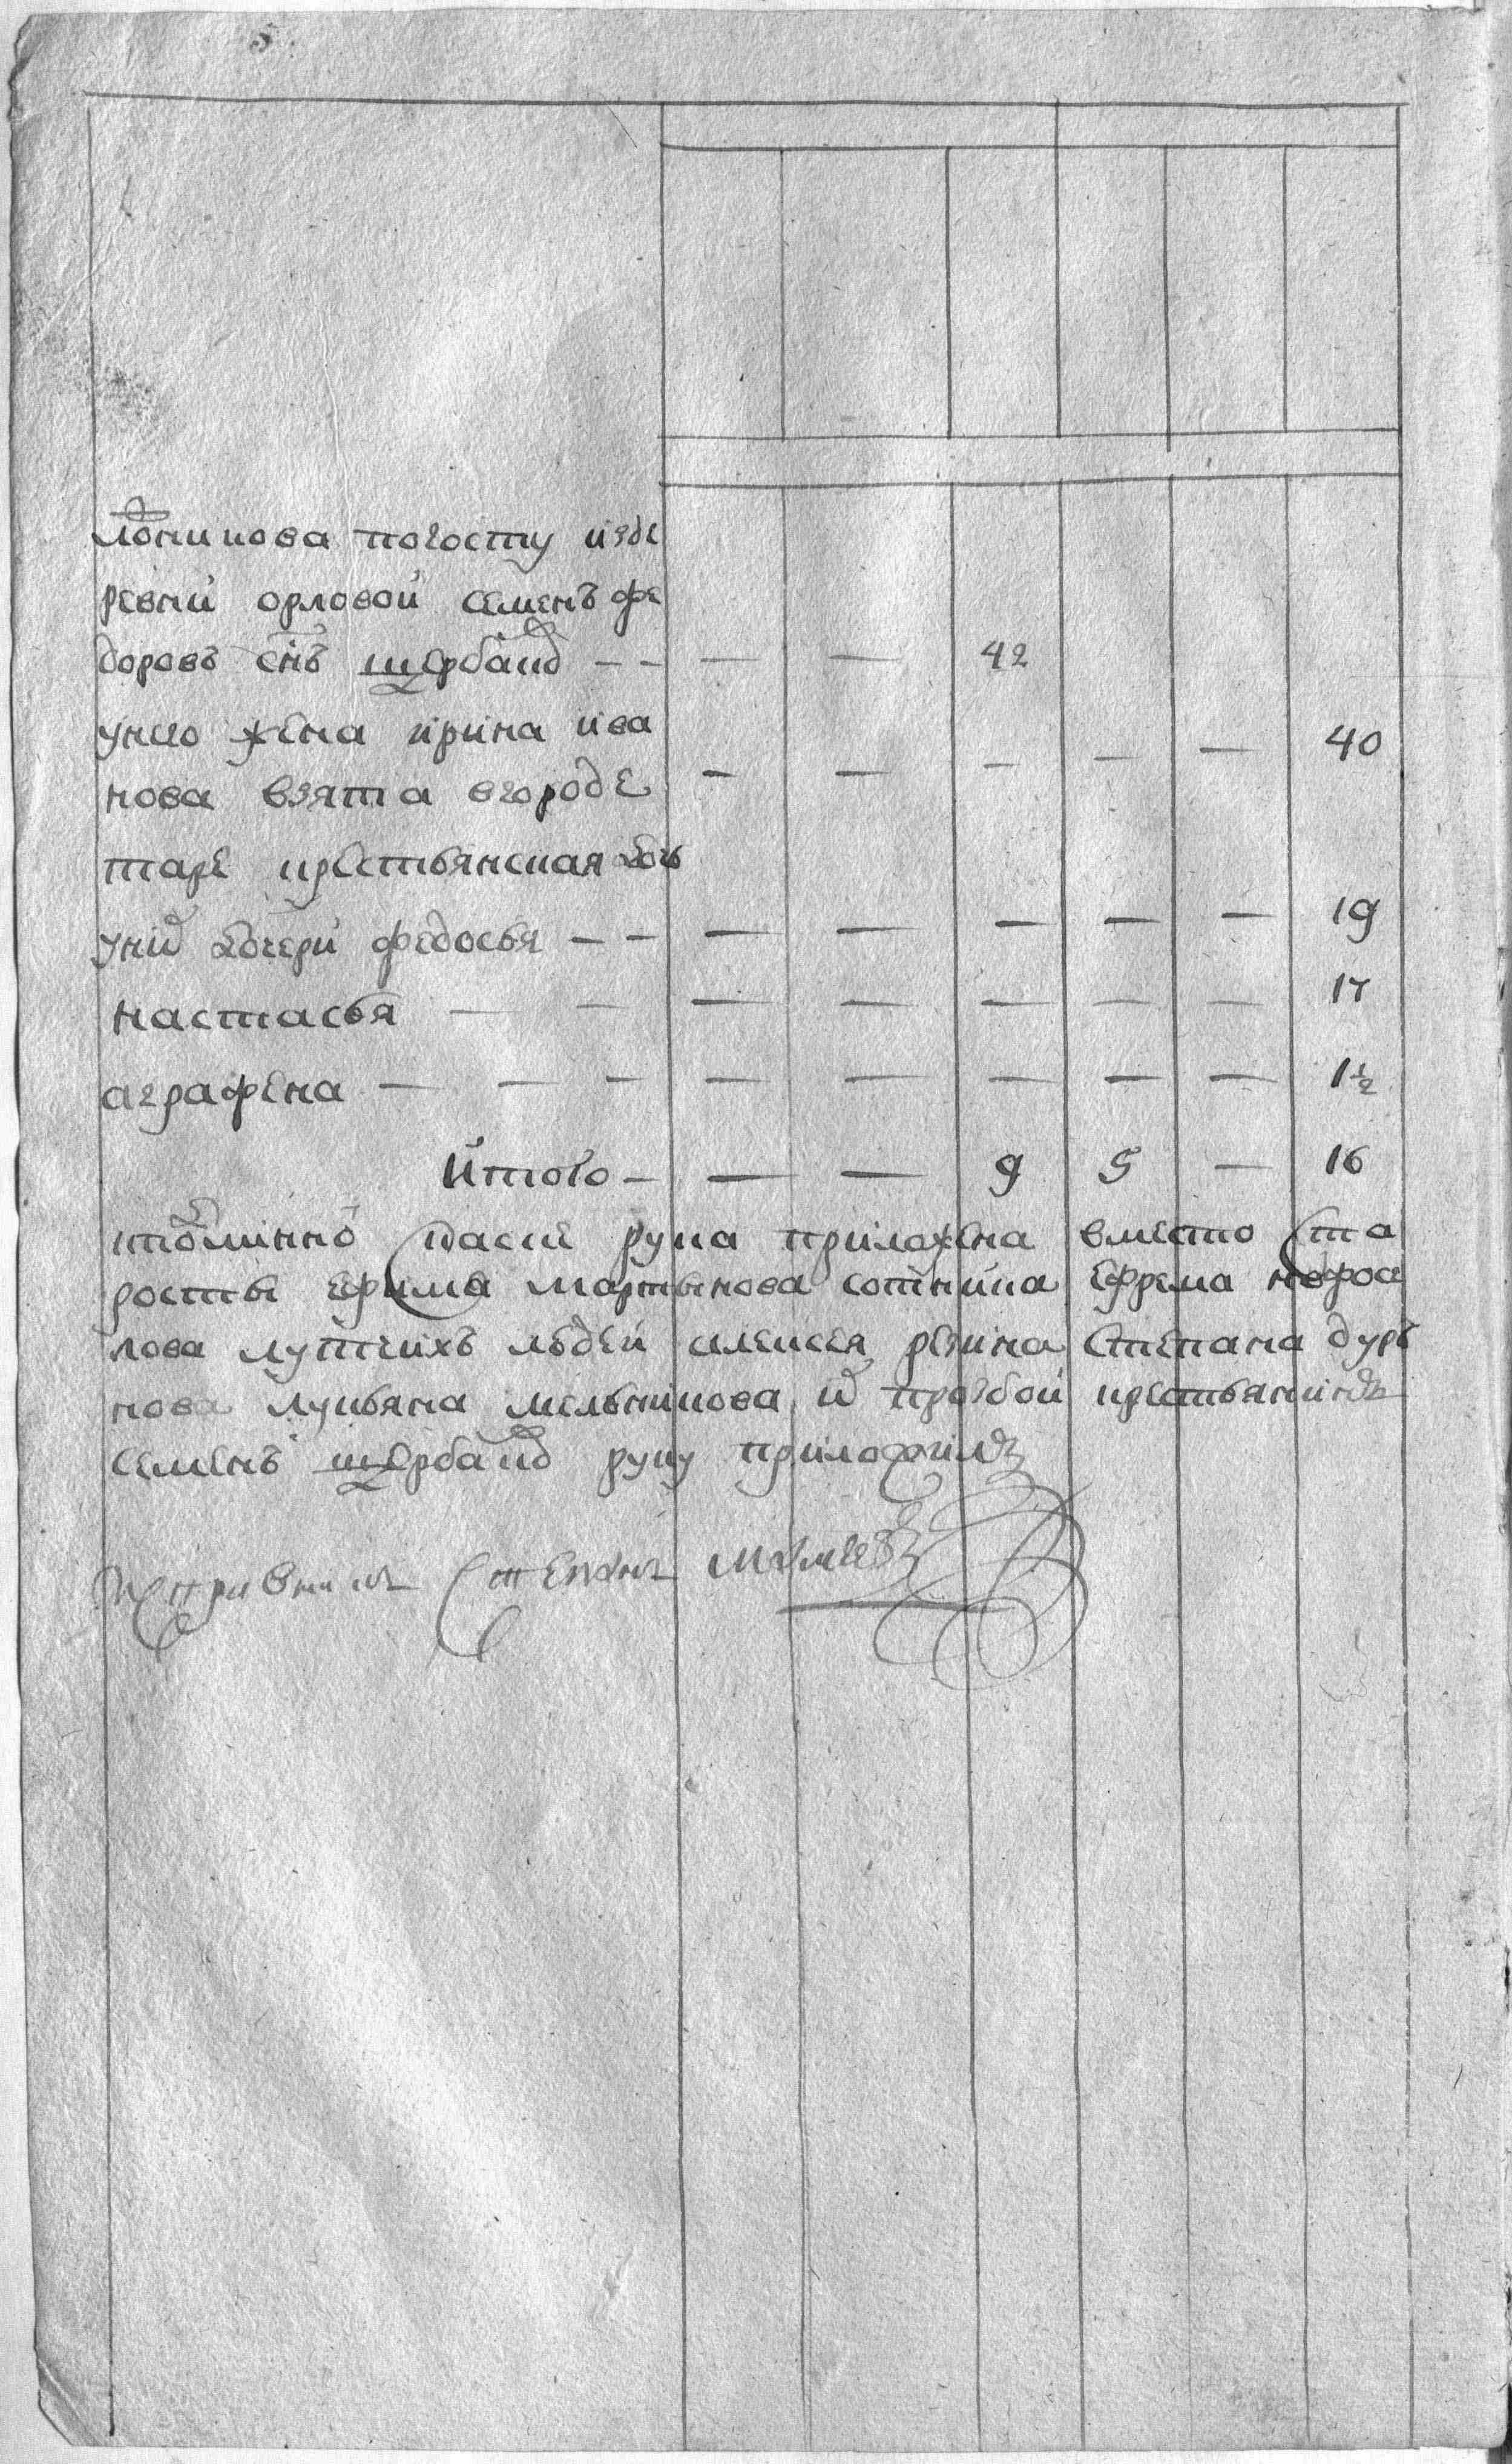 погосту изде
ревни орловой семенъ фе
доровъ снъ щербакъ - - — — 42
унего жена ирина ива
нова взята вгороде — — — — — 40
таре крестьянская дочь
унихъ дочери федосья - - — — — — — 19
настасья — — — — — — — 17
аграфена — — — — — — — — 1½
Итого — — — 9 5 — 16
рука приложена вместо ста
росты ефима мартынова сотника ефрема
лутчихъ людей алексея резина степана дур
нова лукьяна мельникова и прозбой крестьянинъ
семенъ щербакъ руку приложилъ
Исправникъ Степанъ